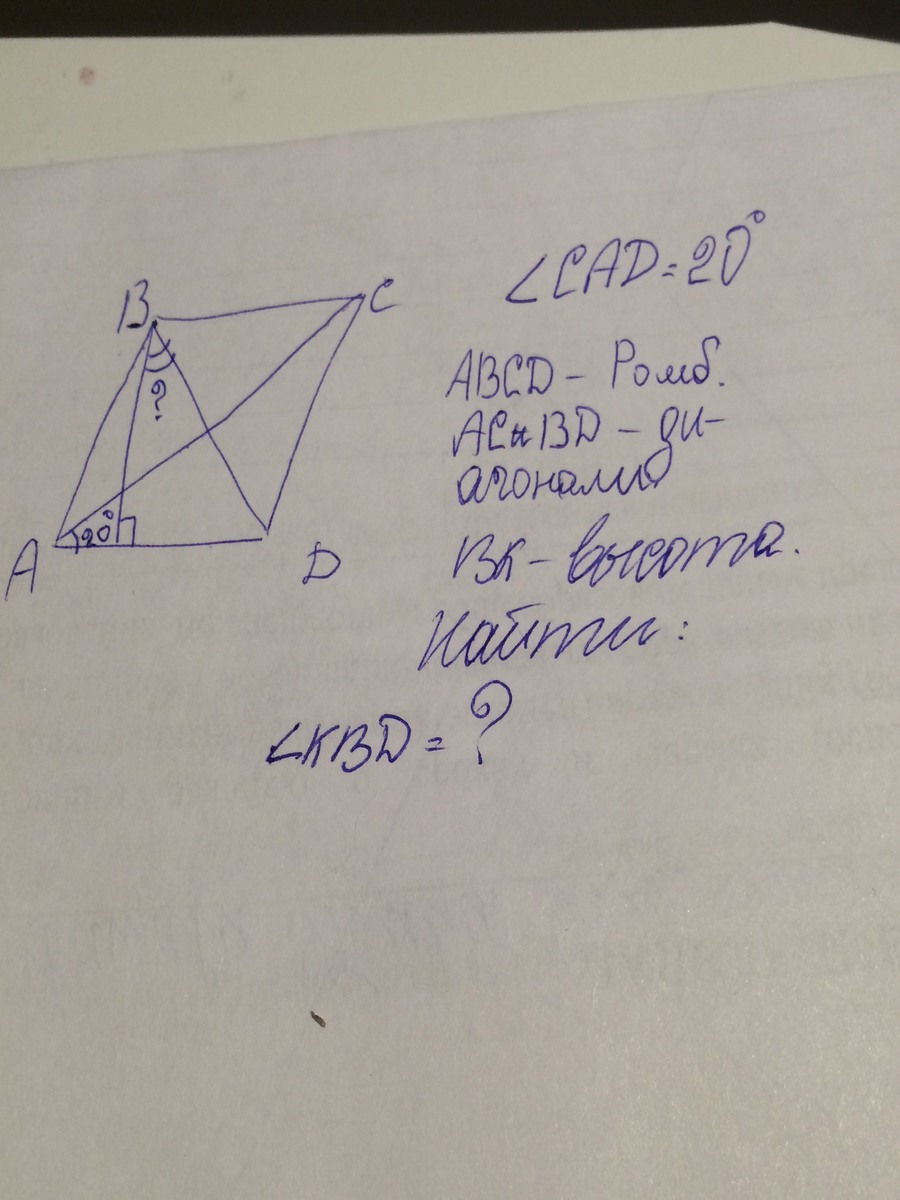 ∠CAD=20°
B
C
?
20°
A
D
ABCD – Ромб.
AC и BD – ди-
агонали
BK – высота.
Найти:
∠KBD = ?